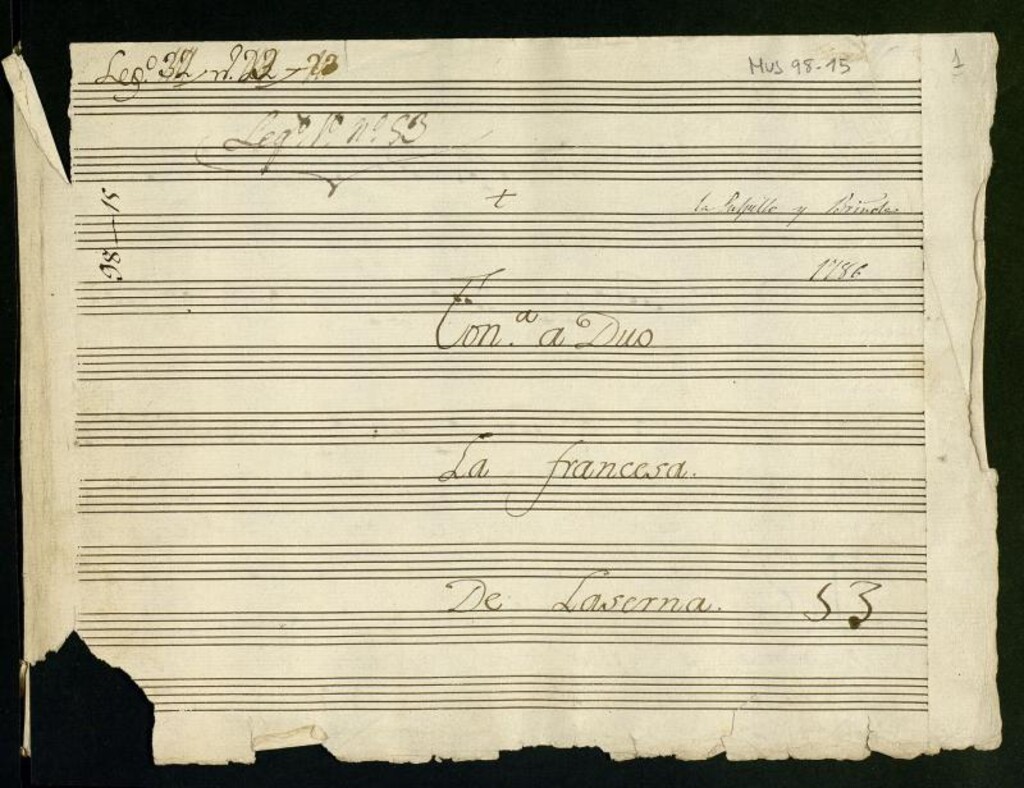 Leg.º 32, n.º 22 - 23
MUS 98-15
1
Leg.º 1.º nº 53
98-15
la Pulpillo y Briñole
1786
Ton.ª a Duo
La francesa.
De Laserna.
53